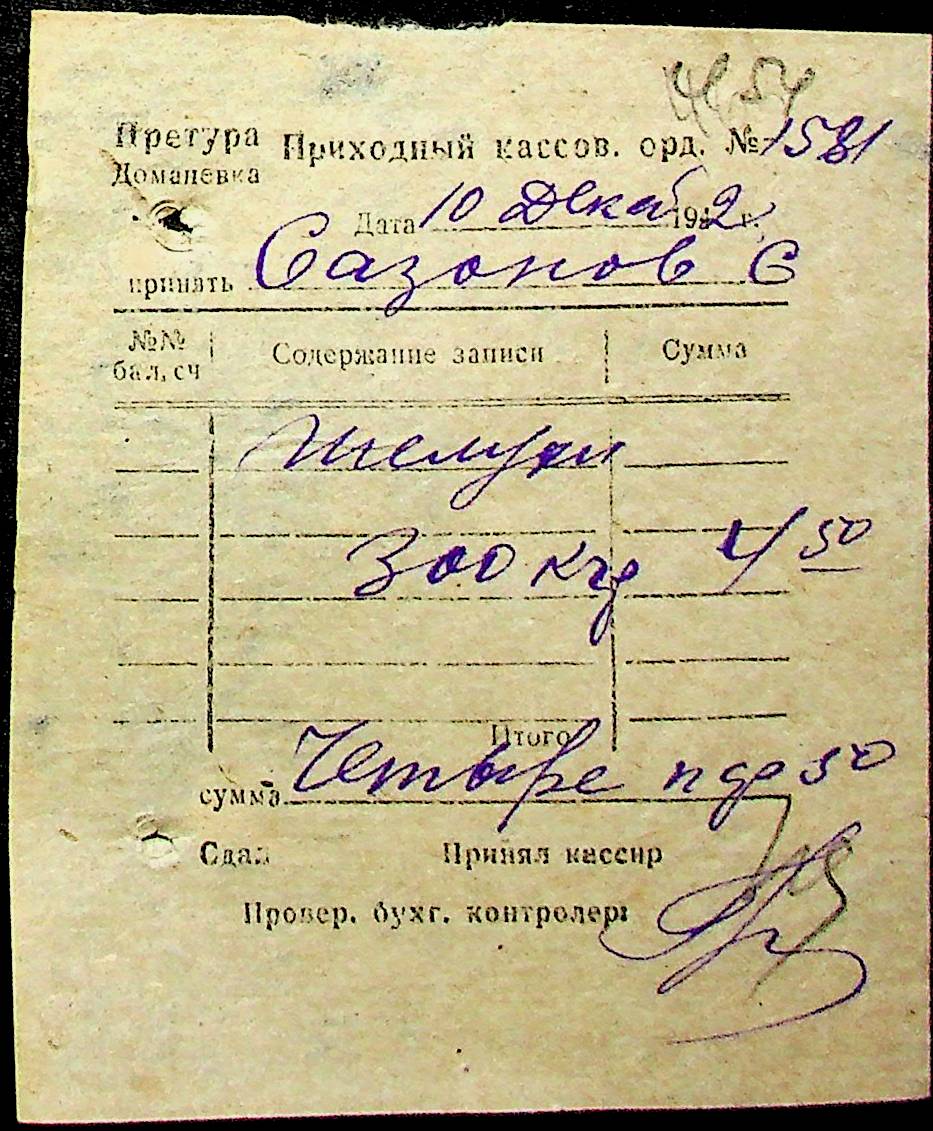 Претура Приходный кассов. орд. № 1581
Доманевка
Дата 10 Декаб 1942 г.
принять Сазонов С
№№ бал. сч Содержание записи Сумма
300 кгр 4 50
Итого
сумма Четыре 50
Сдал Принял кассир
Провер. бухг. контролер